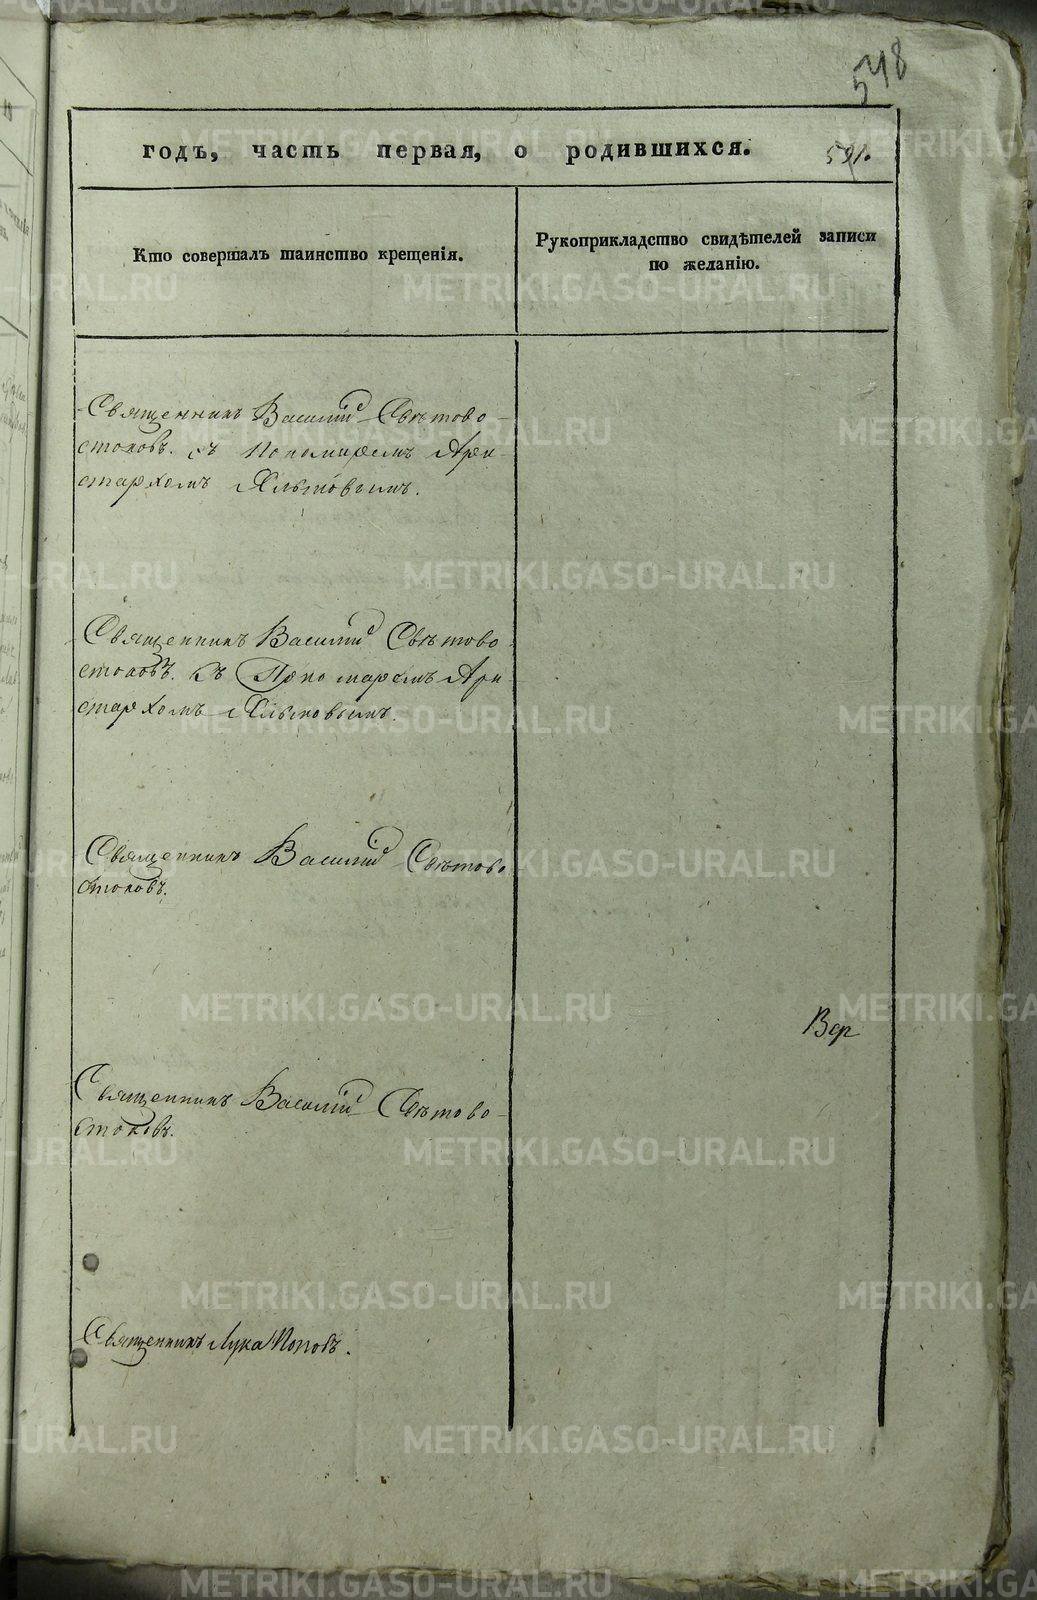 548
годъ, часть первая, о родившихся.
591.
Кто совершалъ таинство крещенія.
Рукоприкладство свидѣтелей записи
по желанію.
Священникъ Василій Свѣтово-
стоковъ. съ Пономаремъ Ари-
стархомъ
Священникъ Василій Свѣтово-
стоковъ. Съ Пономаремъ Ари-
стархомъ
Священникъ Василій Свѣтово
стоковъ.
Вер
Священникъ Василій Свѣтово-
стоковъ.
Священникъ Лука Поповъ.
METRIKI.GASO-URAL.RU